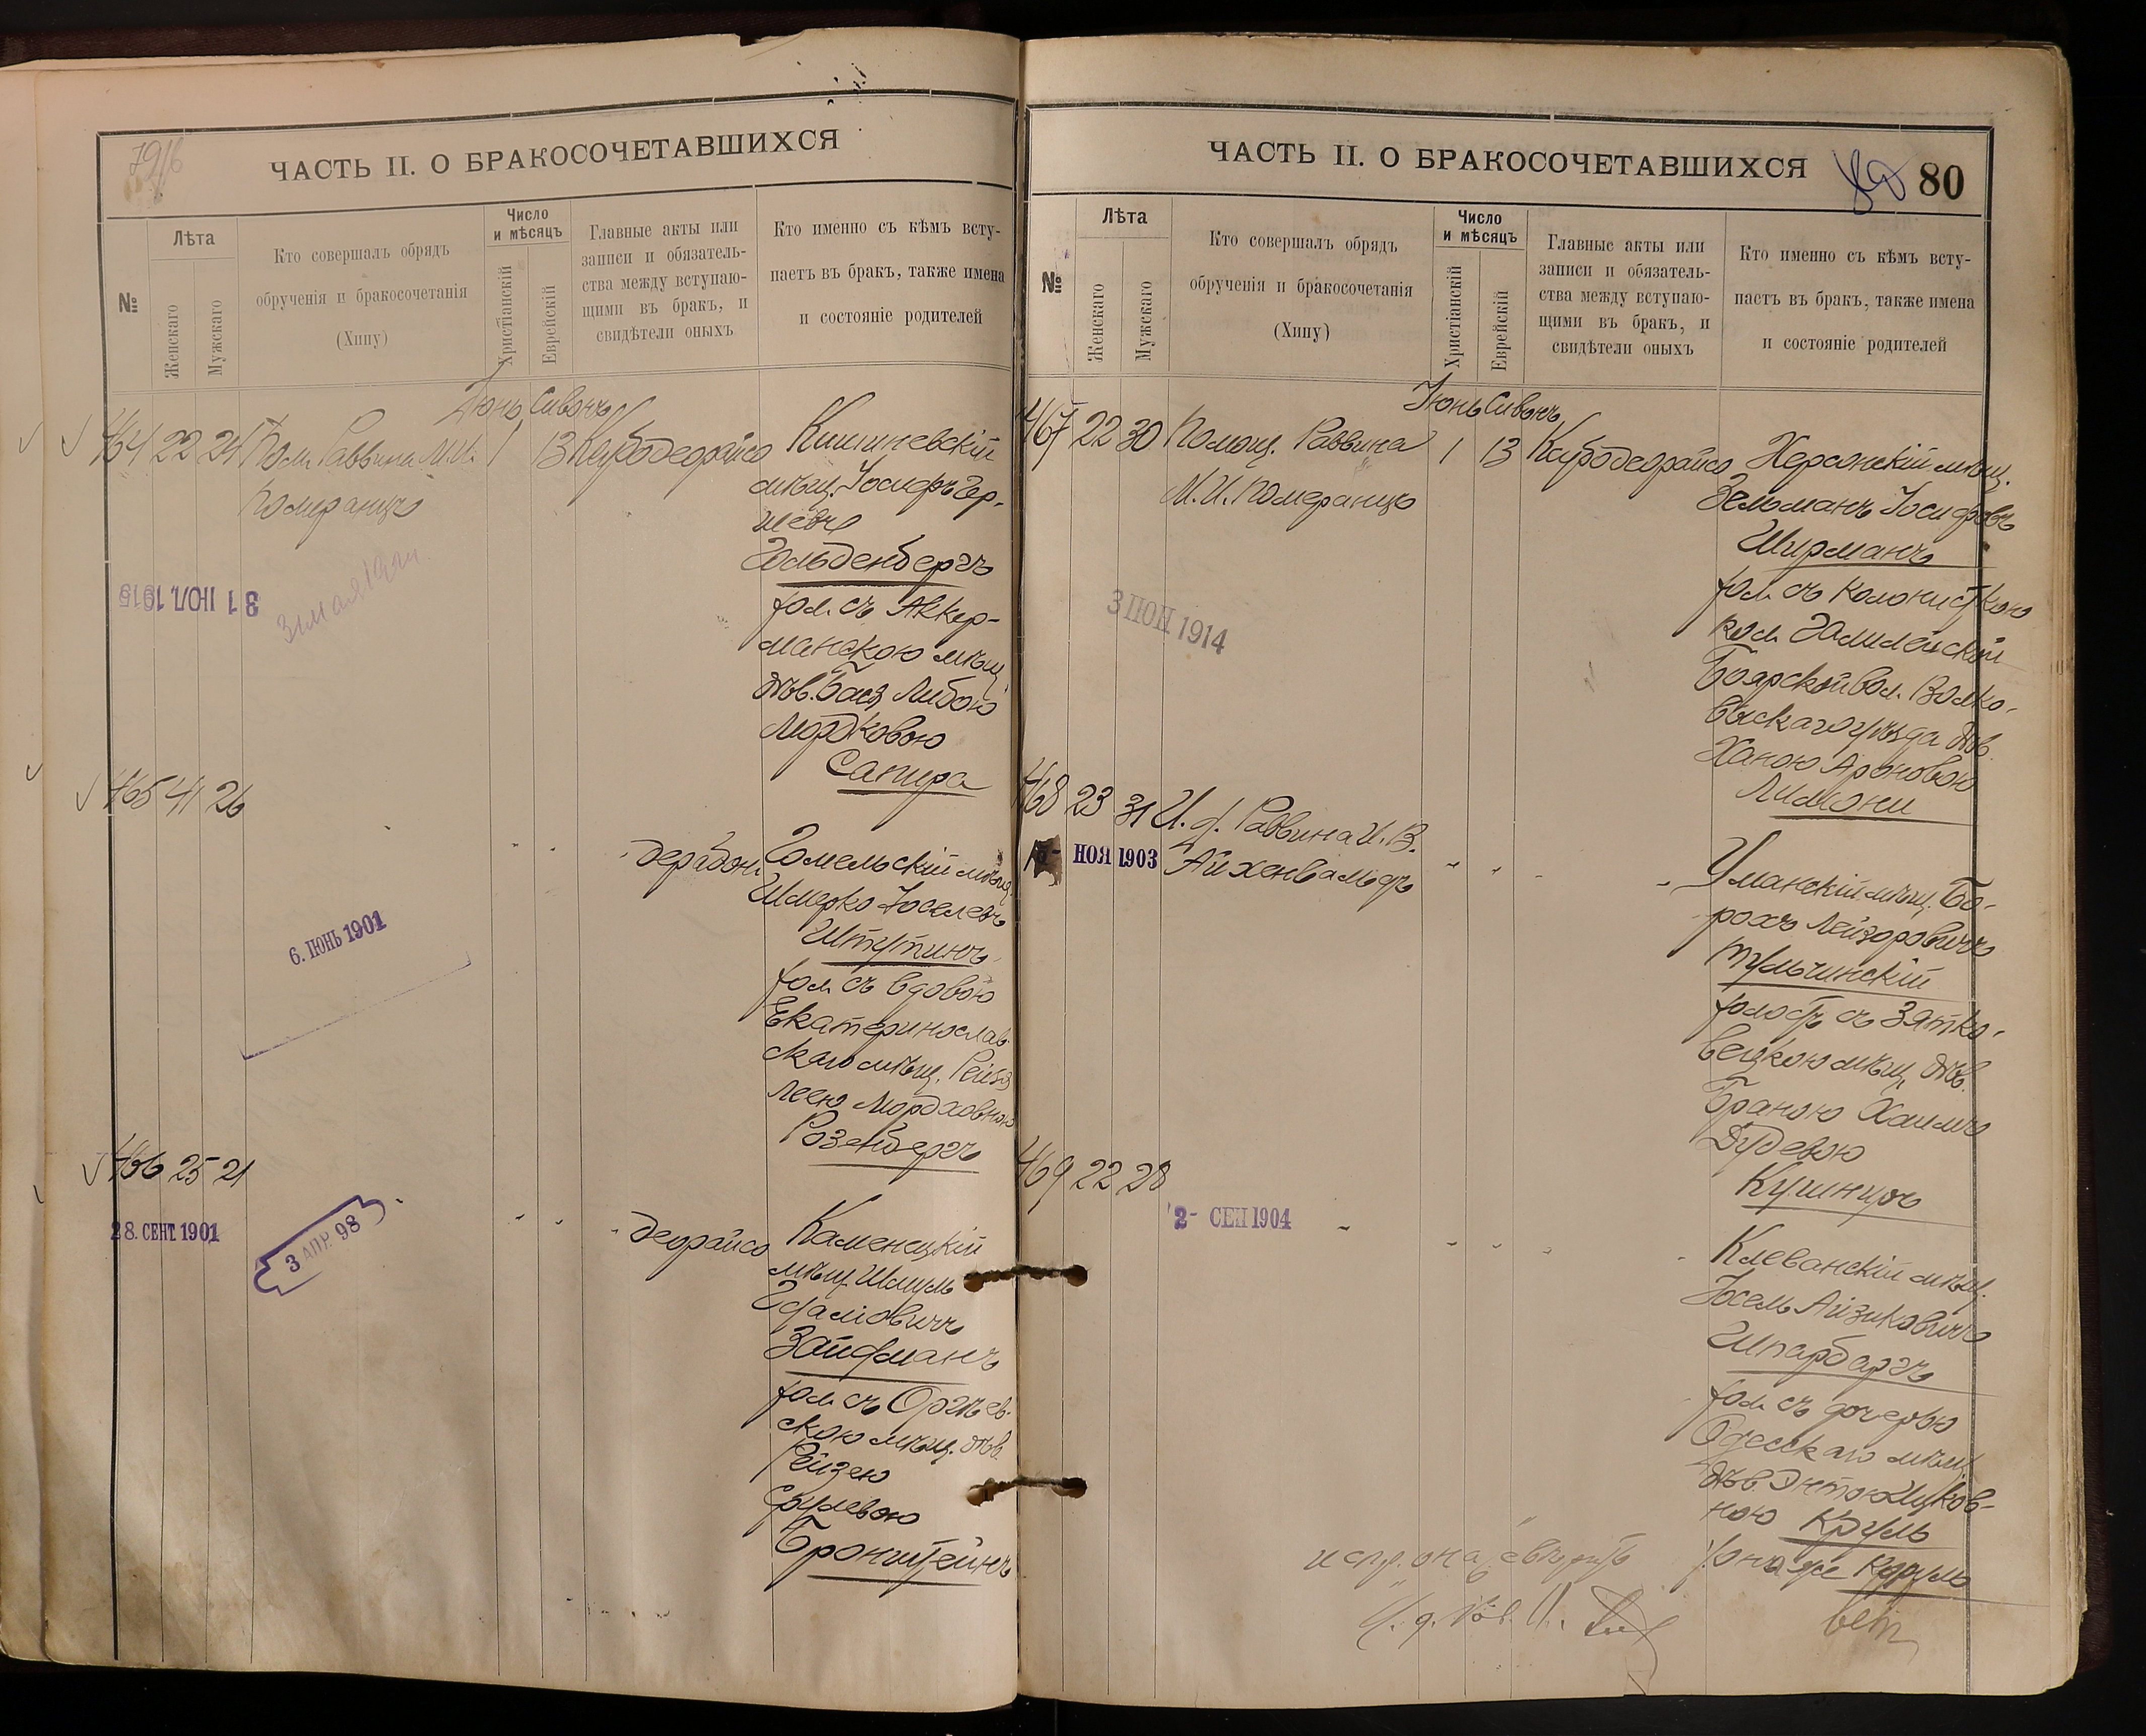 79/б
ЧАСТЬ II. О БРАКОСОЧЕТАВШИХСЯ
№
Лѣта
Женскаго
Мужскаго
Кто совершалъ обрядъ
обрученія и бракосочетанія
(Хипу)
Число
и мѣсяцъ
Христіанскій
Еврейскій
Главные акты или
записи и обязатель-
ства между вступаю-
щими въ бракъ, и
свидѣтели оныхъ
Кто именно съ кѣмъ всту-
паетъ въ бракъ, также имена
и состояніе родителей
Іюнь Сивонъ
464 22 24 Пом. Раввина М.И.
Померанцъ
1 13 Кисбодеорайсо
Кишиневскій
мѣщ. Іосифъ Гер-
шевъ
Гольденбергъ
хол. съ Аккер-
манскою мѣщ.
дѣв. Бася Либою
Мордковою
Сапира
31 ІЮЛ 1915
31 мая 19
465 41 26
" " " дерабон.
Гомельскій мѣщ.
Шмерко Іоселевъ
Штупинъ
хол. съ вдовою
Екатеринослав-
скаго мѣщ. Рейзя
Леею Мордховною
Розенбергъ
6. ІЮНЬ 1901
466 25 21
" " " деорайсо
Каменецкій
мѣщ. Шмуль
Гдаліовичъ
Зайфманъ
хол. съ Оргѣев-
скою мѣщ. дѣв.
Рейзею
Срулевою
Бронштейнъ
28. СЕНТ. 1901
3 АПР. 98
ЧАСТЬ II. О БРАКОСОЧЕТАВШИХСЯ
80 80
№
Лѣта
Женскаго
Мужскаго
Кто совершалъ обрядъ
обрученія и бракосочетанія
(Хипу)
Число
и мѣсяцъ
Христіанскій
Еврейскій
Главные акты или
записи и обязатель-
ства между вступаю-
щими въ бракъ, и
свидѣтели оныхъ
Кто именно съ кѣмъ всту-
паетъ въ бракъ, также имена
и состояніе родителей
Іюнь Сивонъ
467 22 30 Помощ. Раввина
М.И. Померанцъ
1 13 Кисбодеорайсо
Херсонскій мѣщ.
Зельманъ Іосифовъ
Ширманъ
хол. съ колонисткою
кол. Галилейской
Боярской вол. Волко-
выскаго уѣзда дѣв.
Ханою Ароновою
Лимони
3 ІЮН 1914
468 23 31 И. д. Раввина И. В.
Айхенвальдъ
" " " "
Уманскій мѣщ. Бо-
рохъ Лейзоровичъ
Тульчинскій
холост. съ Зятко-
вецкою мѣщ. дѣв.
Браною Хаимъ
Дудевою
Кушниръ
НОЯ 1903
469 22 28
" " " "
Клеванскій мѣщ.
Іосель Айзиковичъ
Шпарбаргъ
хол. съ дочерью
Одесскаго мѣщ.
дѣв. Энтою Ицков-
ною Круль
она же Король
2- СЕН 1904